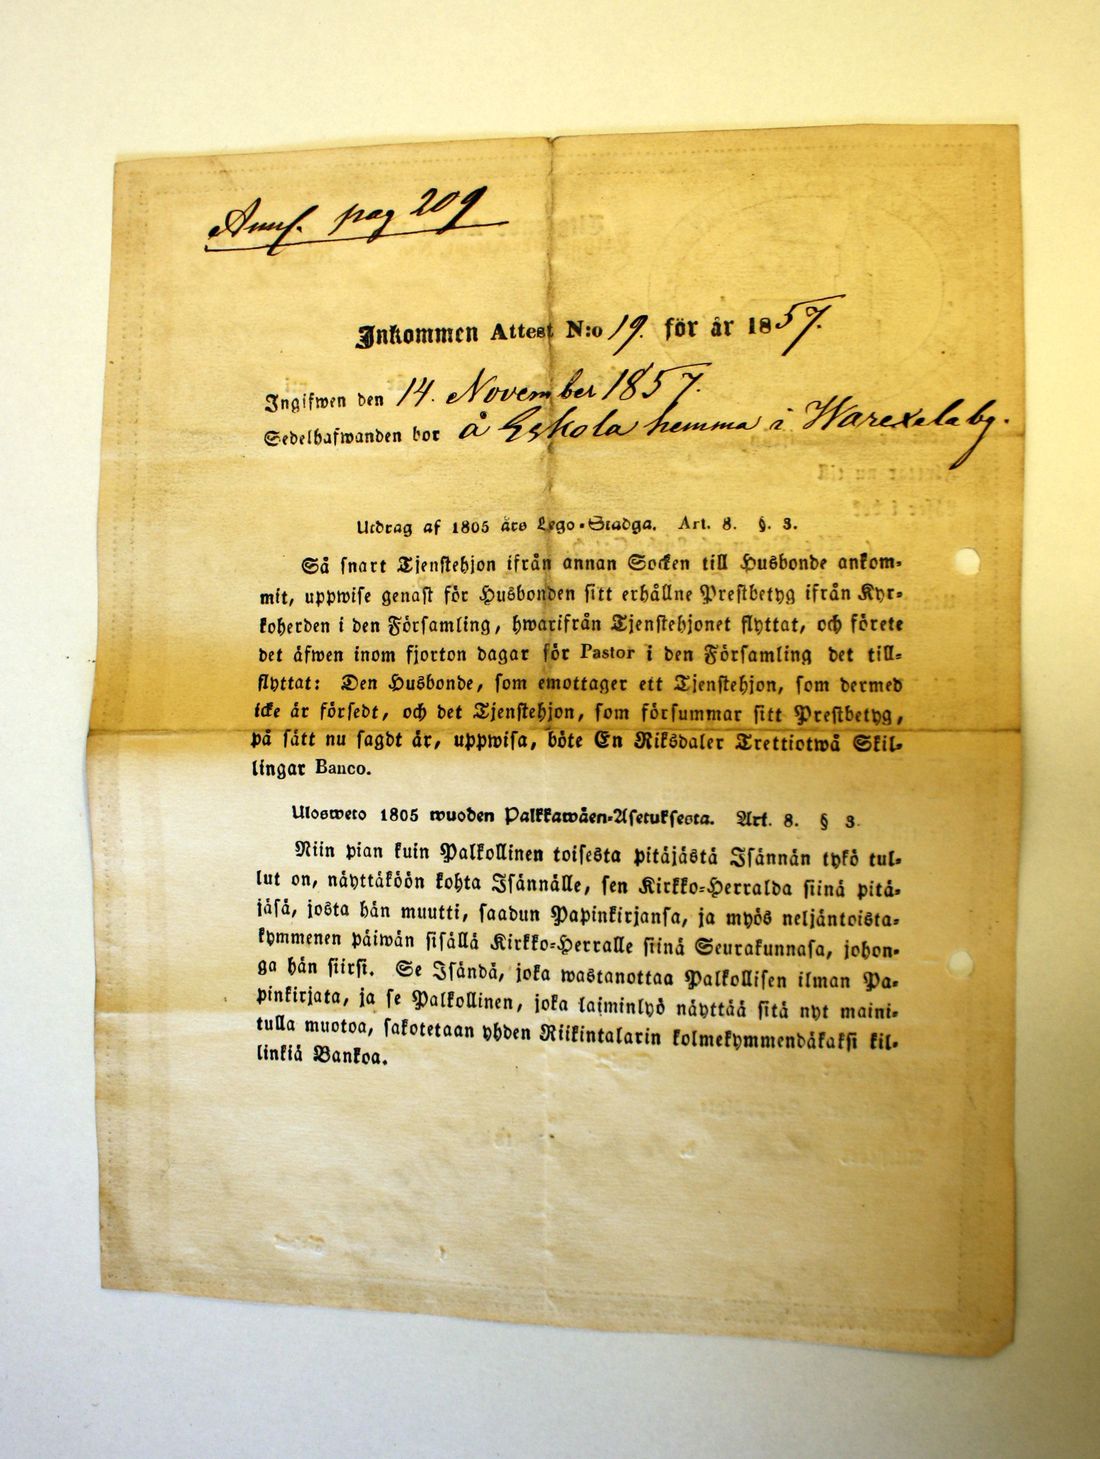 Annf. pag 209
Inkommen Attest N:o 19. för år 1857.
Ingifwen den 14. November 1857.
Sedelhafwanden bor å Eskola hemma i Warexela by.
Utdrag af 1805 års Lego-Stadga. Art. 8. §. 3.
Så snart Tjenstehjon ifrån annan Socken till Husbonde ankom-
mit, uppwise genast för Husbonden sitt erhållne Prestbetyg ifrån Kyr-
koherden i den Församling, hwarifrån Tjenstehjonet flyttat, och förete
det äfwen inom fjorton dagar för Pastor i den Församling det till-
flyttat: Den Husbonde, som emottager ett Tjenstehjon, som dermed
icke är försedt, och det Tjenstehjon, som försummar sitt Prestbetyg,
på sätt nu sagdt är, uppwisa, böte En Riksdaler Trettiotwå Skil-
lingar Banco.
Ulosweto 1805 wuoden Palkkawäen-Asetuksesta. Art. 8. § 3.
Niin pian kuin Palkollinen toisesta pitäjästä Isännän tykö tul-
lut on, näyttäköön kohta Isännälle, sen Kirkko-Herralda siinä pitä-
jäsä, josta hän muutti, saadun Papinkirjansa, ja myös neljäntoista-
kymmenen päiwän sisällä Kirkko-Herralle siinä Seurakunnasa, johon-
ga hän siirsi. Se Isändä, joka wastanottaa Palkollisen ilman Pa-
pinkirjata, ja se Palkollinen, joka laiminlyö näyttää sitä nyt maini-
tulla muotoa, sakotetaan yhden Riikintalarin kolmekymmendäkaksi kil-
linkiä Bankoa.